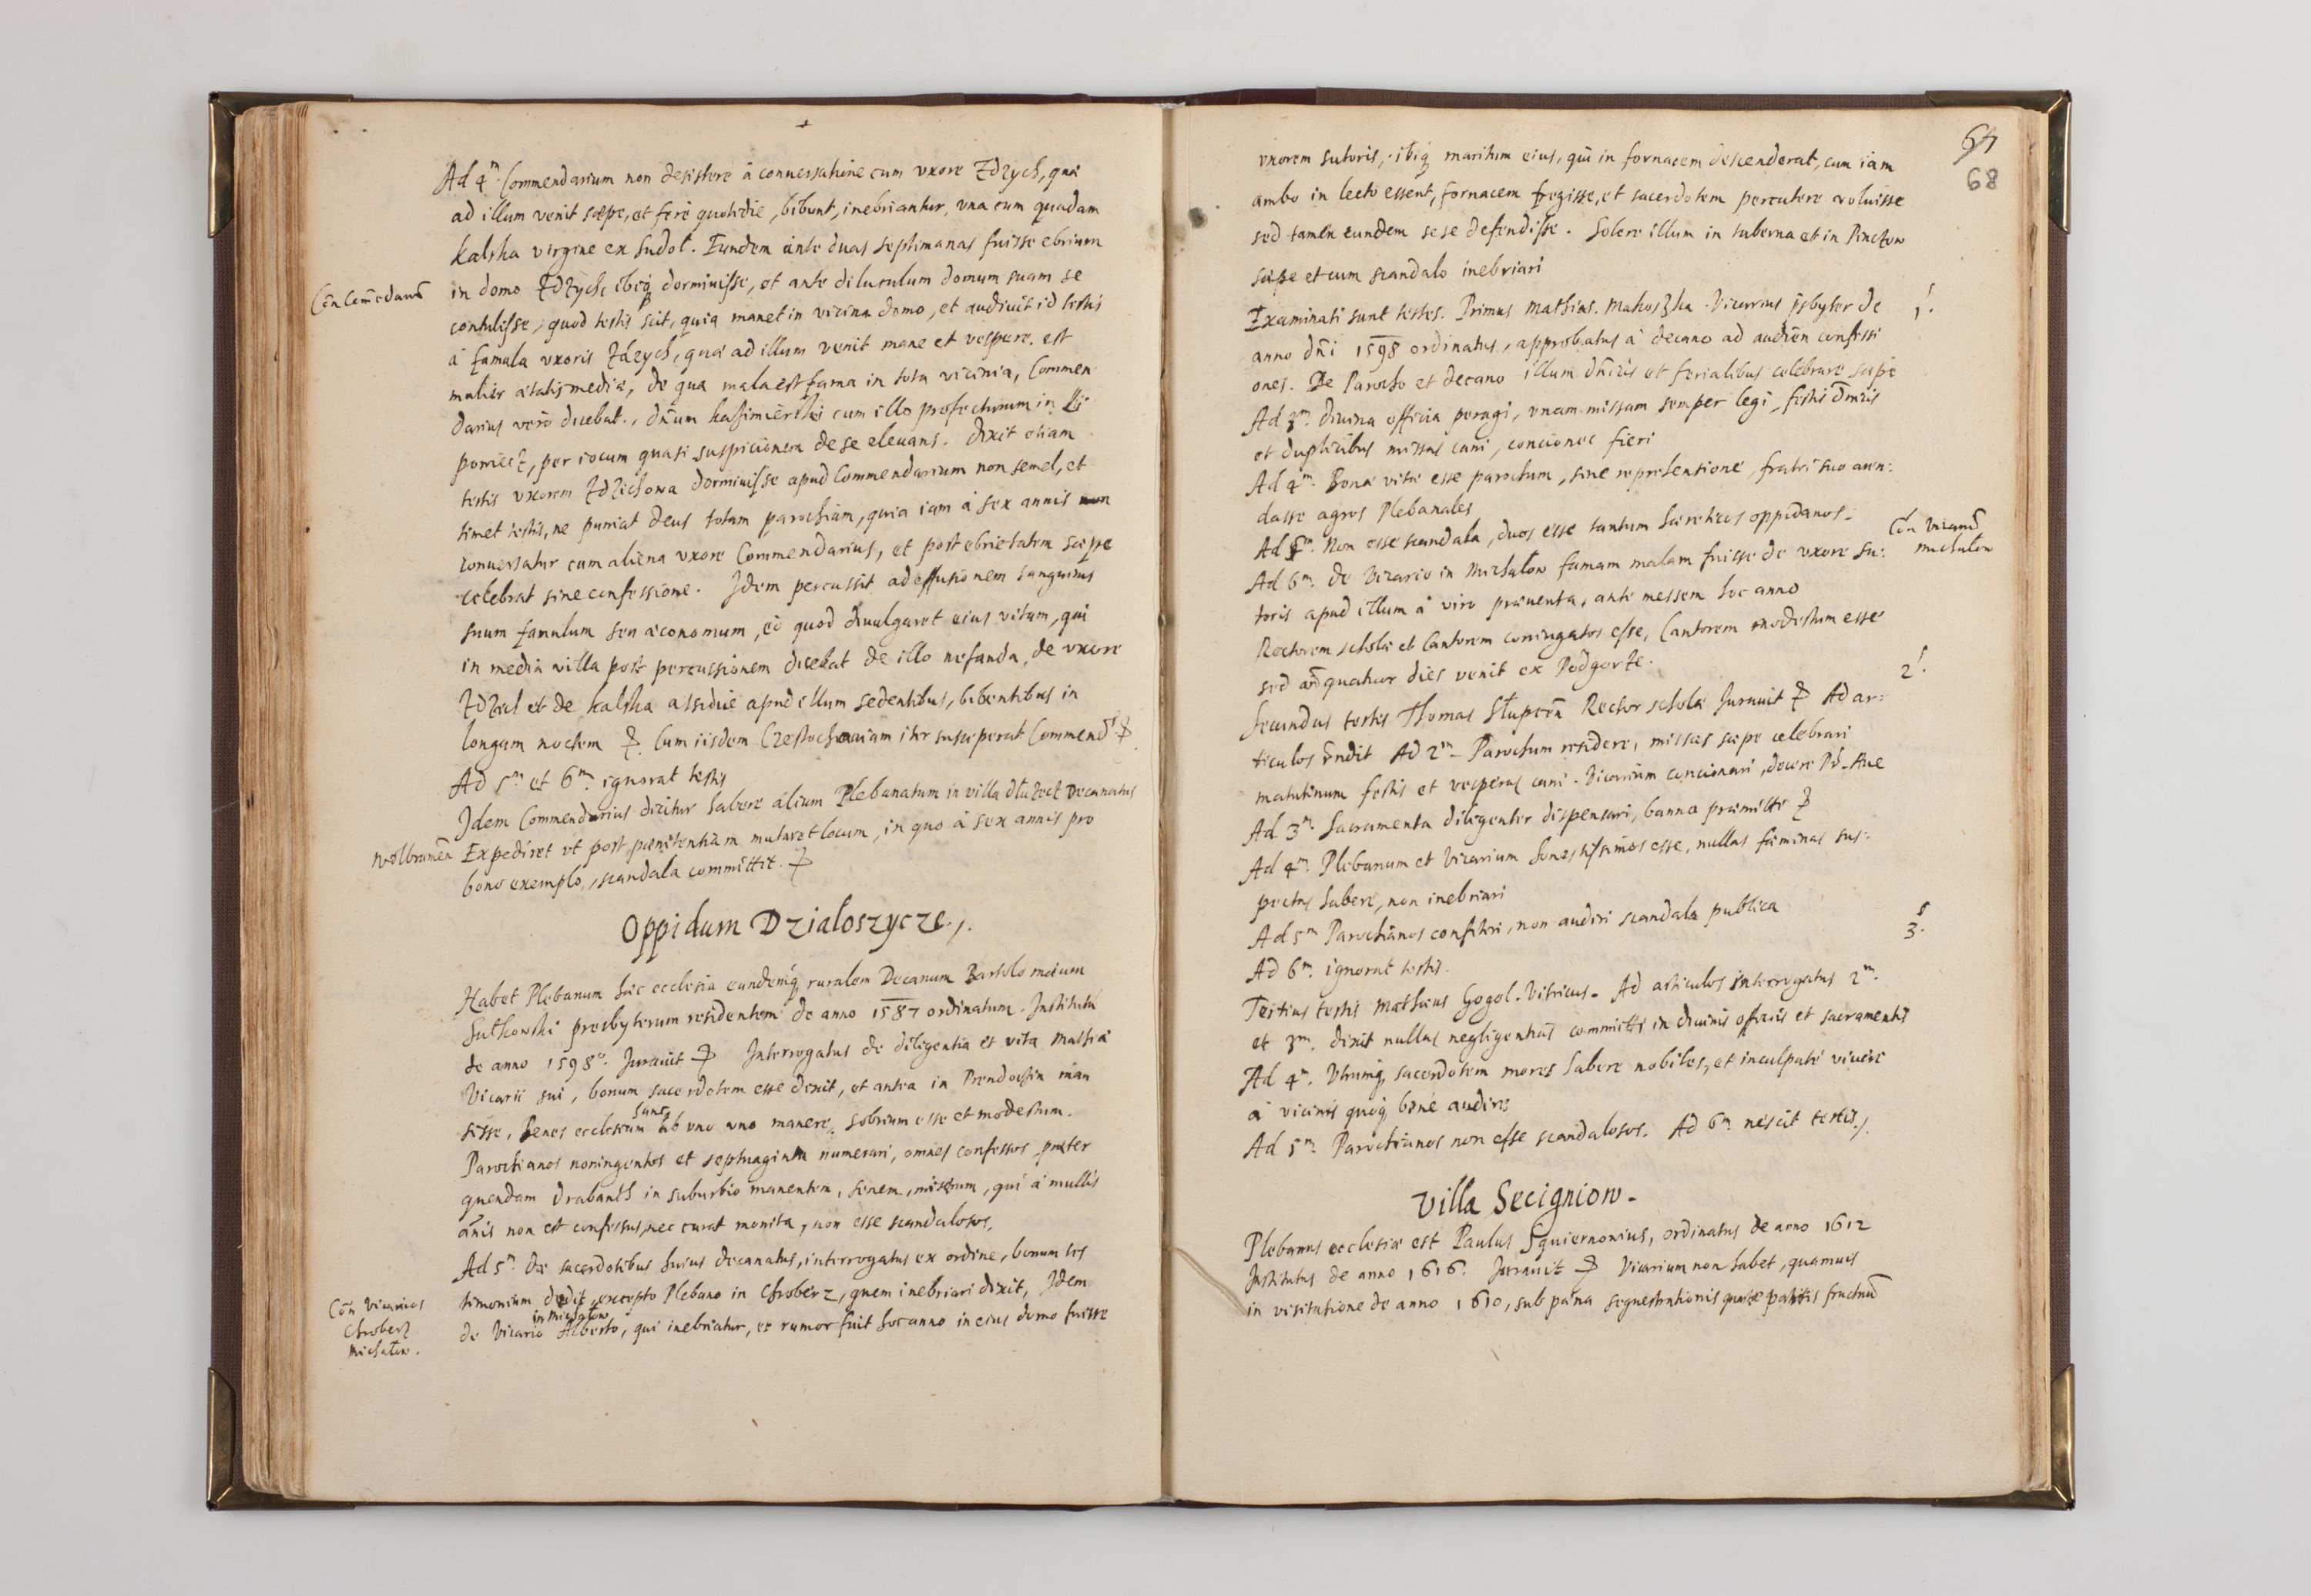 Ad 4m. Commendarium non desistere à conuersatione cum vxore Zdzych, quæ
ad illum venit sæpe, et ferè quotidie, bibunt, inebriantur, vna cum quadam
Kalska virgine ex Sudoł. Eundem ante duas septimanas fuisse ebrium
Con Comedarium
in domo Zdzych, ibiq dormiuisse, et ante diluculum domum suam se
contulisse, quod testis scit, quia manet in vicina domo, et audiuit id testis
à famula vxoris Zdzych, quæ ad illum venit mane et vespere. est
mulier ætatis mediæ, de qua mala est fama in tota vicinia, Commen
darius verò ducebat., dnum Kasimierski cum illo profecturum in
per iocum quasi suspicionem de se eleuans. dixit etiam
testis vxorem Zdzichowa dormiuisse apud Commendarium non semel, et
timet testis, ne puniat Deus totam parochiam, quia iam à sex annis
conuersatur cum aliena vxore Commendarius, et post ebrietatem sæpe
celebrat sine confessione. Idem percussit ad effusionem sanguinis
suum famulum seu œconomum, eò quod diuulgaret eius vitam, qui
in media villa post percussionem dicebat de illo nefanda, de vxore
et de Kalska assiduè apud illum sedentibus, bibentibus in
longam noctem. Cum iisdem Czestochouiam iter susceperat Commend.
Ad 5m et 6m. ignorat testis
Idem Commendarius dicitur habere alium Plebanatum in villa Decanatus
Wolbramen Expediret vt post pœnitentiam mutaret locum, in quo à sex annis pro
bono exemplo, scandala committit.
Oppidum Dzialoszycze.
Habet Plebanum hæc ecclesia eundemq ruralem Decanum Bartolomæum
Sułkowski presbyterum residentem de anno 1587 ordinatum. Institutū
de anno 1598o. Jurauit Interrogatus de diligentia et vita Mathiæ
Vicarii sui, bonum sacerdotem esse dixit, et antea in Prendocin man
sisse, Penes ecclesiam hanc ab vno anno manere, sobrium esse et modestum.
Parochianos noningentos et septuaginta numerari, omnes confessos præter
quendam Drabanth in suburbio manentem, senem, miserum, qui à multis
annis non est confessus, nec curat monita, non esse scandalosos,
Ad 5m. De sacerdotibus huius decanatus, interrogatus ex ordine, bonum tes
timonium dedit, excepto Plebano in Chroberz, quem inebriari dixit, Idem
Con Vicarios
Chroberz
Michałow.
de Vicario in Michałow Alberto, qui inebriatur, et rumor fuit hoc anno in eius domo fuisse
64
68
vxorem sutoris, ibiq maritum eius, qui in fornacem descenderat, cum iam
ambo in lecto essent, fornacem fregisse, et sacerdotem percutere voluisse
sed tamen eundem sese defendisse. Solere illum in taberna et in Pinczow
sæpe et cum scandalo inebriari
Examinati sunt testes. Primus Mathias. Makoszka. Vicarius psbyter de
1s.
anno dni 1598 ordinatus, approbatus à decano ad audien confessi
ones. De Parocho et decano illum dnicis et ferialibus celebrare sæpe
Ad 3m. diuina officia peragi, vnam missam semper legi, festis dnicis
et duplicibus missas cani, conciones fieri
Ad 4m. Bonæ vitæ esse parochum, sine reprehensione, fratri suo aren:
dasse agros Plebanales
Ad 5m. Non esse scandala, duos esse tantum hæreticos oppidanos.
Con Vicariū
Michałow
Ad 6m. De Vicario in Michałow famam malam fuisse de vxore su:
toris apud illum à viro præuenta, ante messem hoc anno
Rectorem scholæ et Cantorem coniugatos esse, Cantorem modestum esse
sed ante quatuor dies venit ex Podgorze.
2s.
Secundus testis Thomas Rector scholæ Jurauit Ad ar:
ticulos rndit Ad 2m. Parochum residere, missas sæpe celebrari
matutinum festis et vesperas cani. Vicarium concionari, docere Pr. Aue
Ad 3m. Sacramenta diligenter dispensari, banna præmitti
Ad 4m. Plebanum et Vicarium honestissimos esse, nullas fœminas sus:
pectas habere, non inebriari
Ad 5m Parochianos confiteri, non audiri scandala publica
3s.
Ad 6m. ignorat testis.
Tertius testis Mathæus Gogol. Vitricus. Ad articulos interrogatus 2m.
et 3m. dixit nullas negligentias committi in diuinis officiis et sacramentis
Ad 4m. Vtrumq sacerdotem mores habere nobiles, et inculpatè viuere
à vicinis quoq benè audire
Ad 5m. Parochianos non esse scandalosos. Ad 6m nescit testis.
Villa Secigniow.
Plebanus ecclesiæ est Paulus Squiernonius, ordinatus de anno 1612
Institutus de anno 1616. Jurauit Vicarium non habet, quamuis
in visitatione de anno 1610, sub pœna sequestrationis quartæ partis fructuū